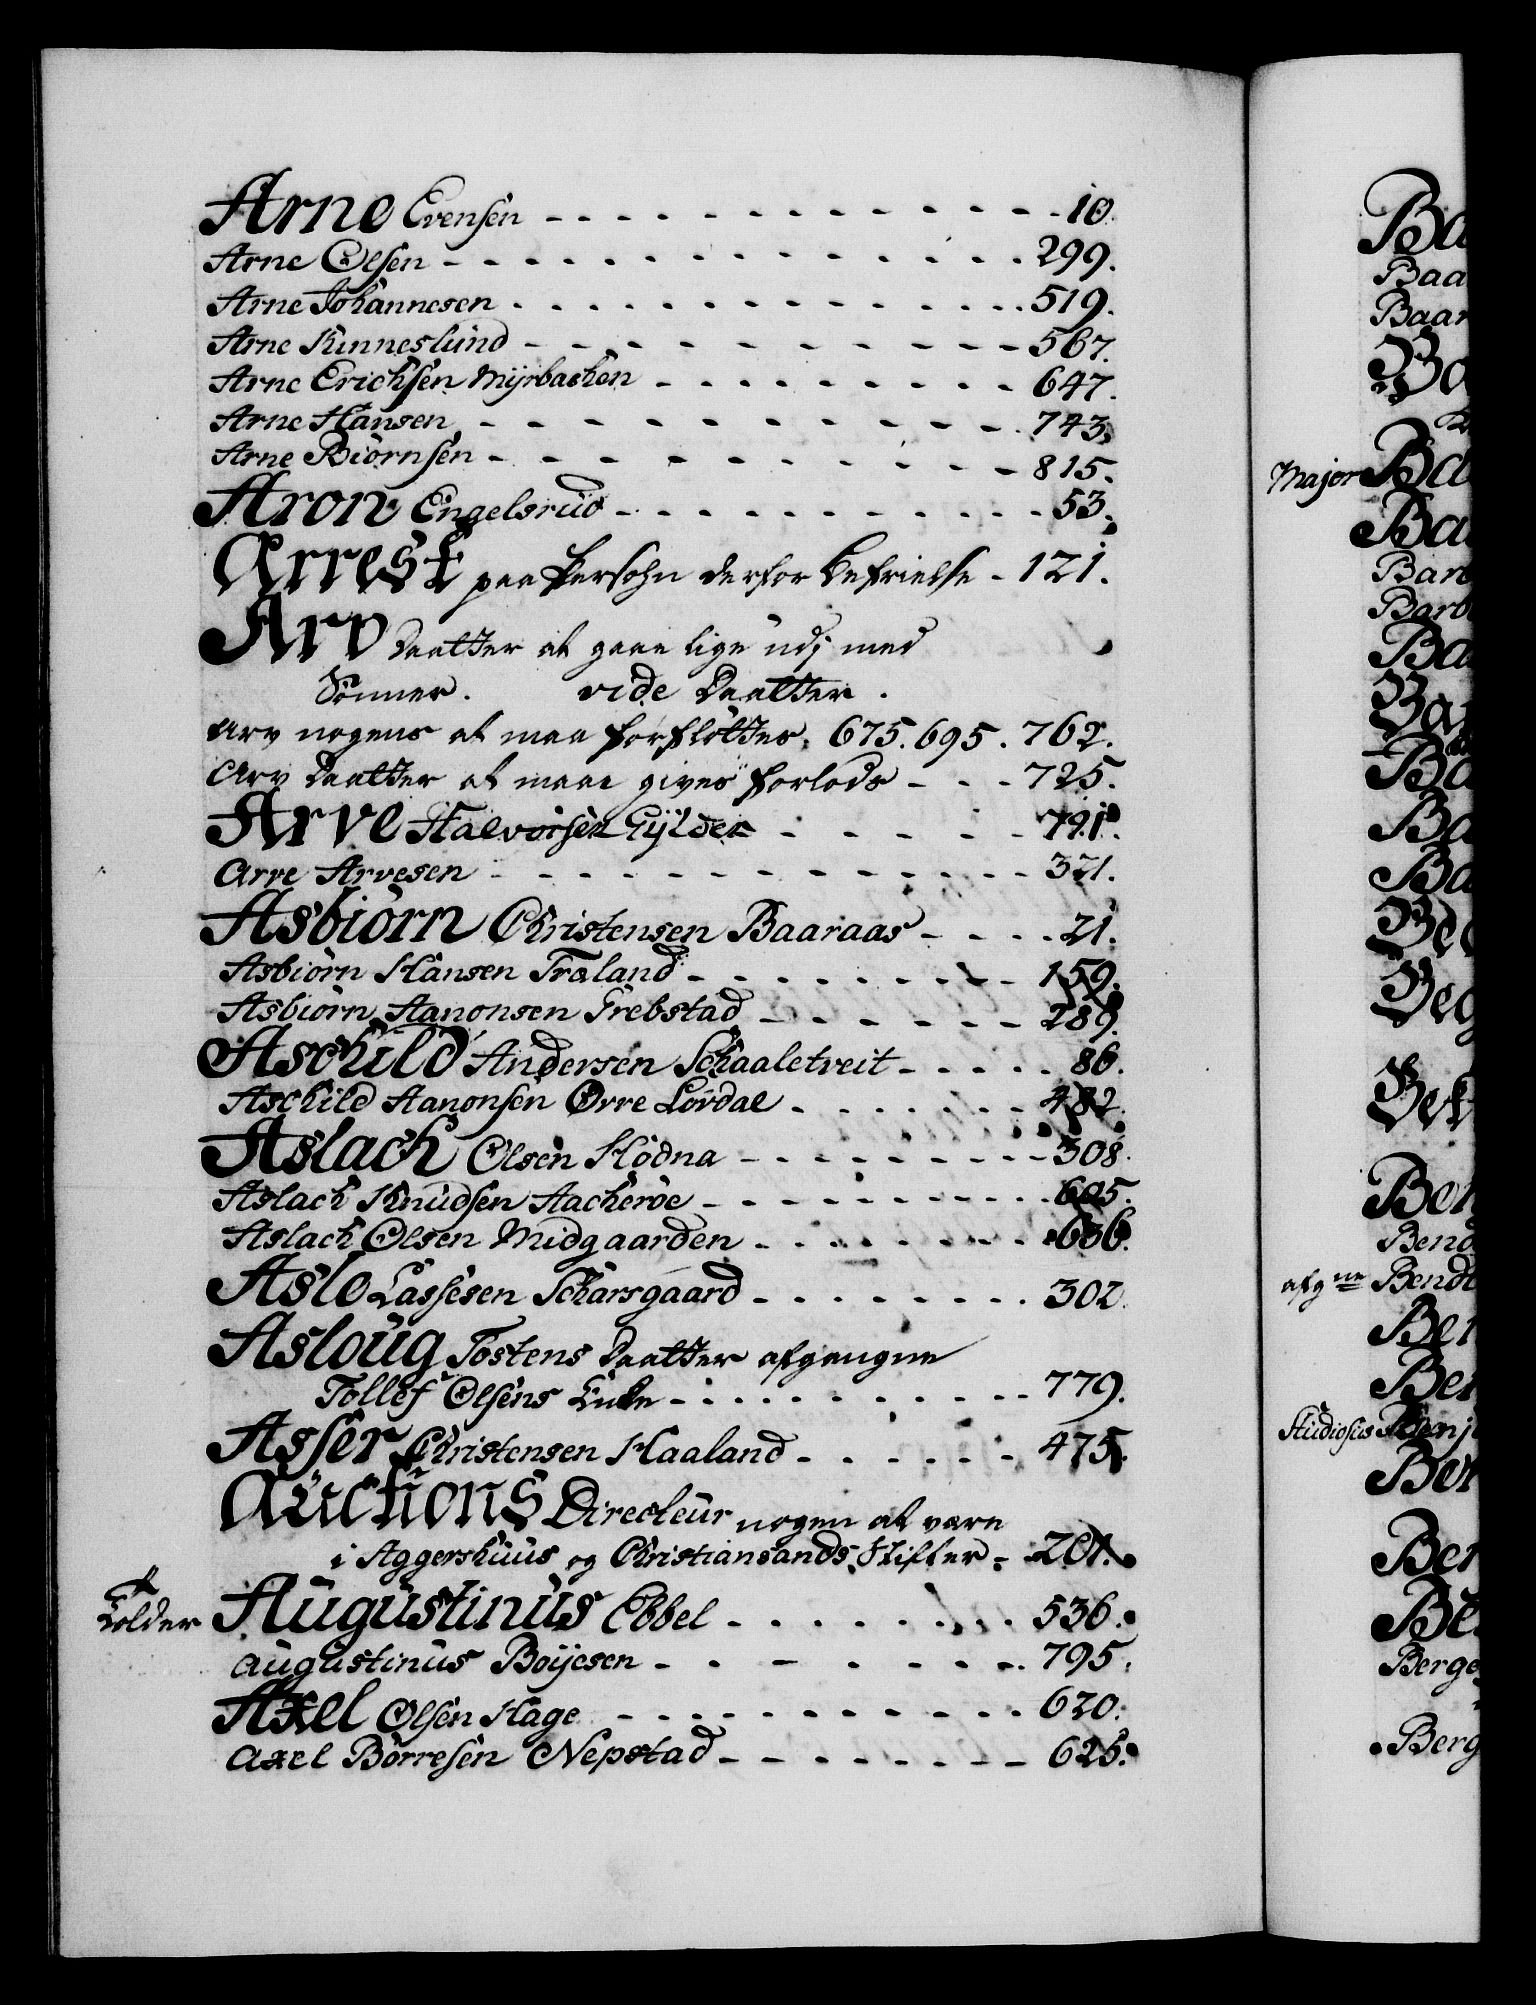 Arne Evensen - - - - - - - - - - - - - - 10.
Arne Olsen - - - - - - - - - - - - - - - 299.
Arne Johannesen - - - - - - - - - - - - - 519.
Arne Kinneslund - - - - - - - - - - - - 567.
Arne Erichsen Myrbachen - - - - - - - - - 647.
Arne Hansen - - - - - - - - - - - 743.
Arne Biørnsen - - - - - - - - - - 815.
Aron Engelsrud - - - - - - - - - - - 53.
Arrest paa Persohn derfor befrielse - 121.
Arv Daatter at gaae lige udi med
Sønner. vide Daatter.
Arv nogens at maa forfløttes. 675. 695. 762.
Arv Daatter at maae gives forlods - - - 725.
Arve Halvorsen Gylder - - - - - - 791.
Arve Arvesen - - - - - - - - - - - - - 321.
Asbiørn Christensen Baaraas - - - - 21.
Asbiørn Hansen Træland - - - - - - - - 159.
Asbiørn Aanonsen Grebstad - - - - - - - 289.
Aschild Andersen Schaaletveit - - - - - 86.
Aschild Aanonsen Ørre Lovdal - - - - - - 482.
Aslach Olsen Hødna - - - - - - - - 308.
Aslach Knudsen Aacherøe - - - - - - - - - 605.
Aslach Olsen Midgaarden - - - - - - - - 636.
Asle Lassesen Scharsgaard - - - - - - - - 302.
Asloug Tostens Daatter afgangne
Tollef Olsens Enke - - - - - - - - - - 779.
Asser Christensen Haaland - - - - - - 475.
Auctions Directeur nogen at være
i Aggershuus og Christiansands Stifter - 201.
Augustinus Ebbel - - - - - - - - 536.
Augustinus Boyesen - - - - - - - - 795.
Axel Olsen Hage - - - - - - - - - - - 620.
Axel Børresen Nepstad - - - - - - - - 625.
Ba
Baa
Baar
Major Ba
Ba
Barb
Ba
Ba
Ba
Ba
Beg
Ben
Bend
afgne Bendt
Ber
Ber
Studiosus Benj
Ber
Ber
Berge
Berg